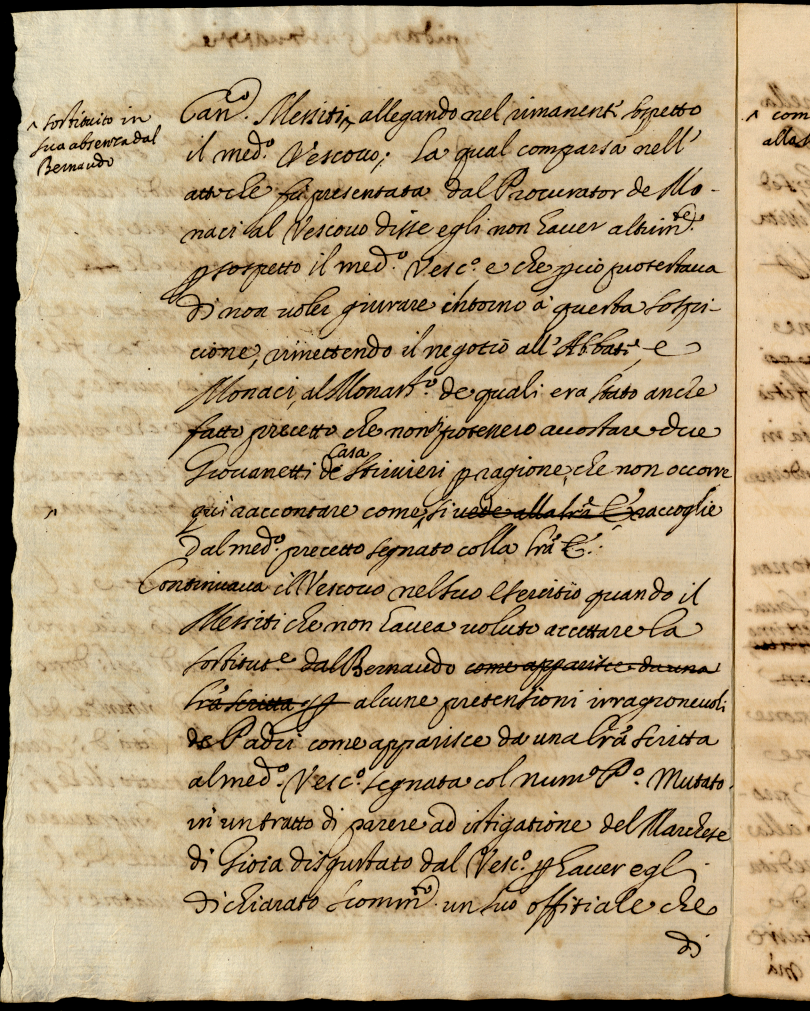 ^ sostituito in
sua absenza dal
Bernaudo
Can.co Messiti^, allegando nel rimanente sospetto
il med.o Vescovo; La qual comparsa nell'
atto che fù presentata dal Procurator de Mo-
naci al Vescovo disse egli non haver altrim.te
p sospetto il med.o Vesc.o e che p ciò protestava
di non voler giurare intorno à questa sospi-
cione, rimettendo il negotio all'Abbate, e
Monaci, al Monast.o de quali era stato anche
fatto precetto che non si potessero accostare due
Giovanetti di Casa Strivieri p ragione, che non occorre
qui raccontare come, ^ si vede alla lrã E raccoglie
dal med.o precetto segnato colla lrã E.
Continuava il Vescovo nel suo esercitio quando il
Messiti che non havea voluto accettare la
sostitut.e dal Bernaudo come apparisce da una
lrã scritta p alcune pretensioni irragionevoli
de Padri come apparisce da una lrã scritta
al med.o Vesc.o segnata col num.o P.o Mutato
in un tratto di parere ad istigatione del Marchese
di Gioia disgustato dal Vesc.o p haver egli
dichiarato scomm.to un suo offitiale che
di
^ com
alla